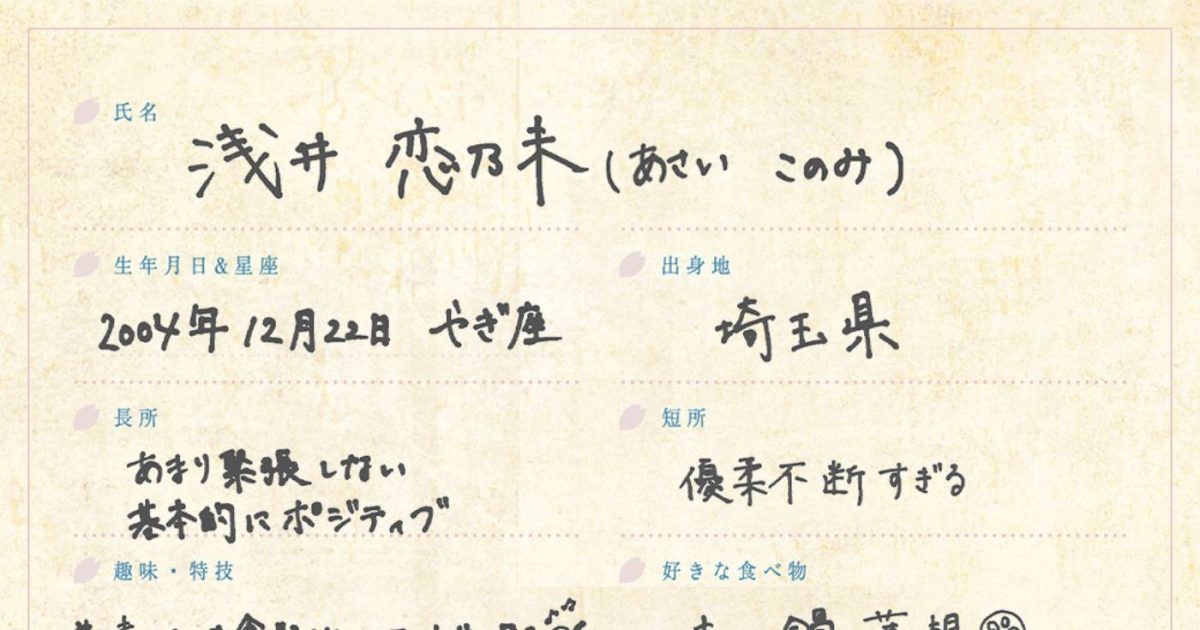 氏名
浅井 恋乃未 (あさい このみ)
生年月日&星座
2004年 12月22日 やぎ座
出身地
埼玉県
長所
あまり緊張しない
基本的にポジティブ
短所
優柔不断すぎる
趣味・特技
好きな食べ物